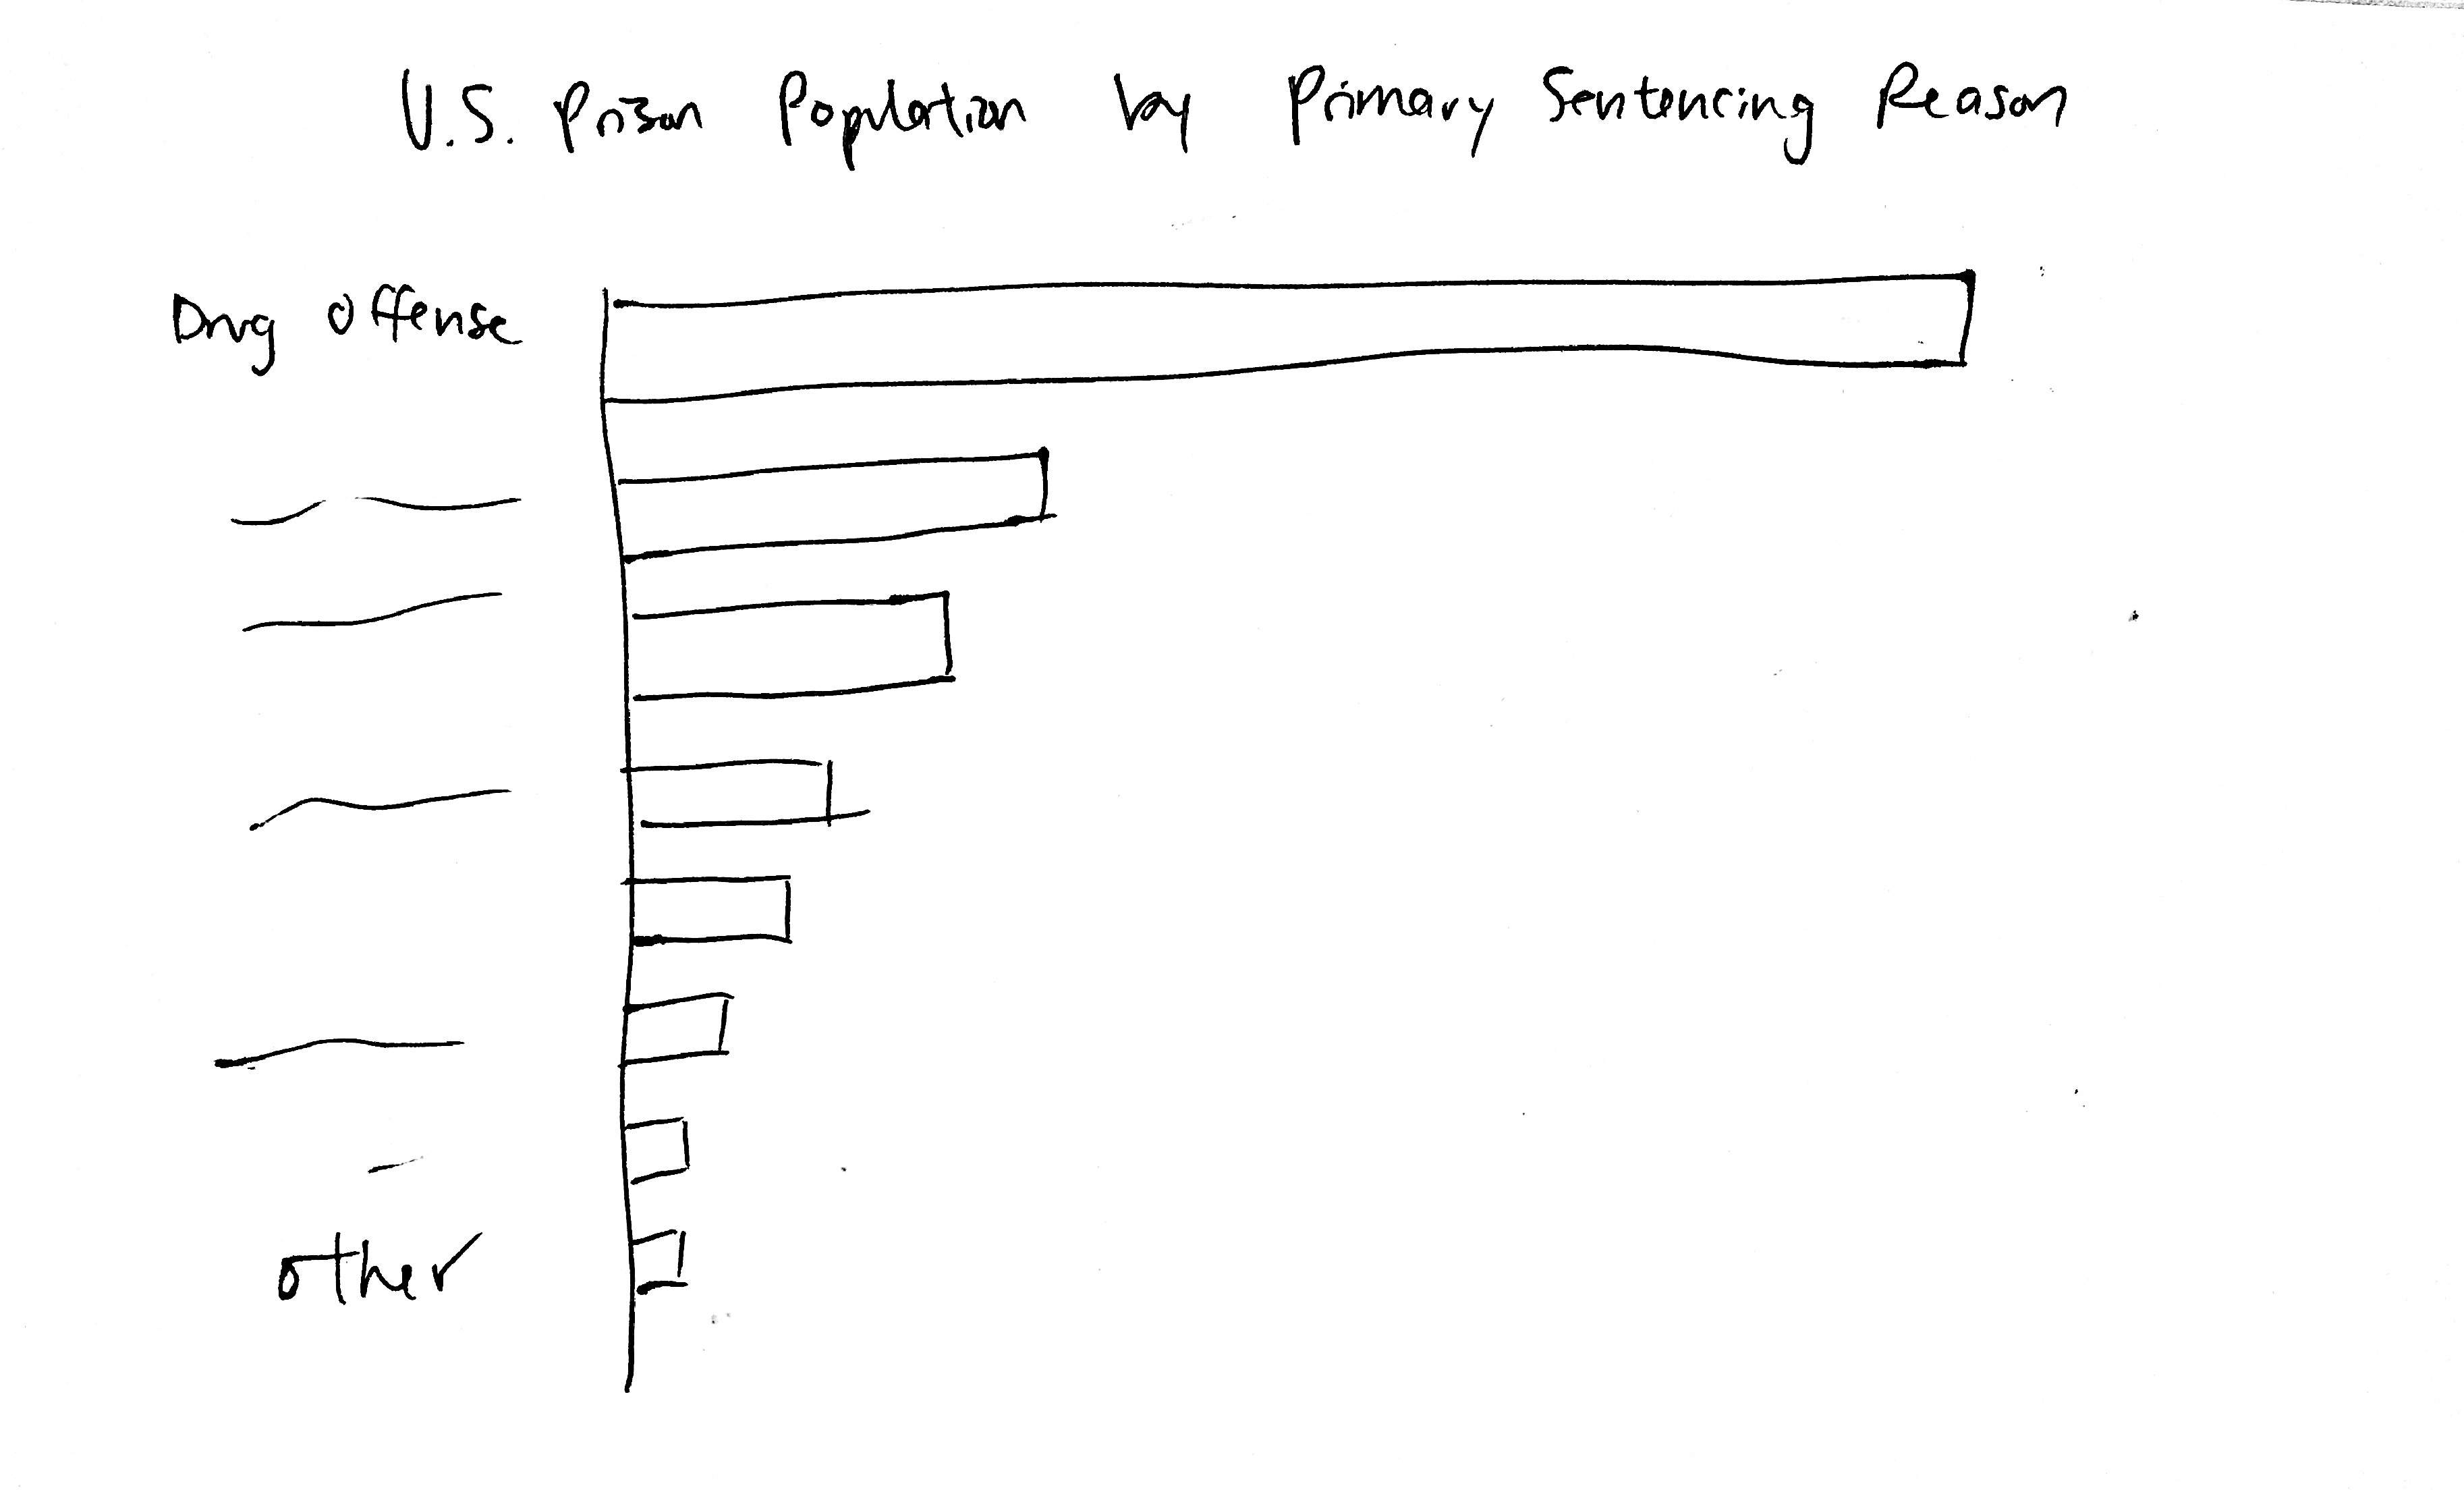 U.S. Prison Population by Primary Sentencing Reason
Drug Offense
other